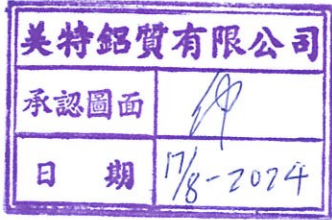 美特鋁質有限公司
承認圖面
日期 17/8-2024